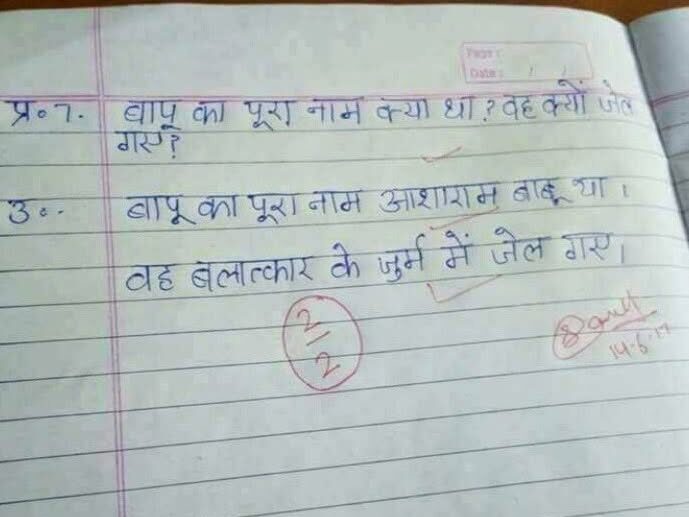 Page :
Date : / /
प्र० 7. बापू का पूरा नाम क्या था? वह क्यों जेल
गए?
उ०- बापू का पूरा नाम आशाराम बाबू था।
वह बलात्कार के जुर्म में जेल गए।
2/2
14-6-17